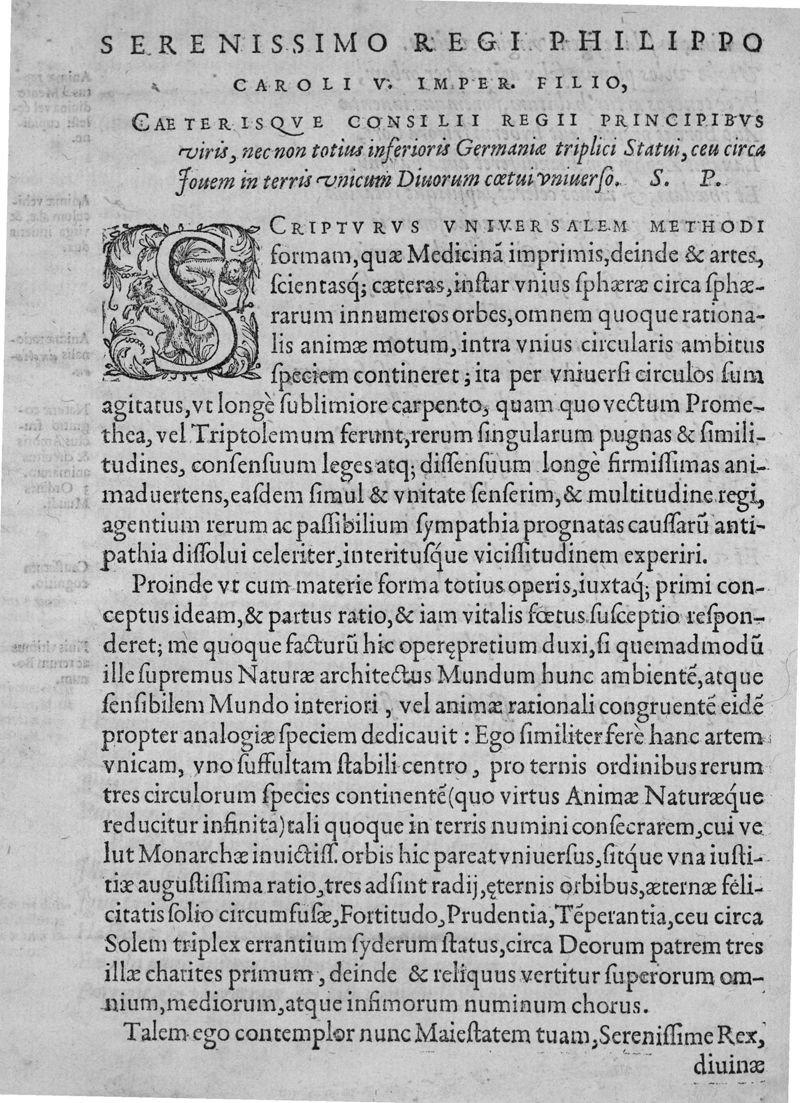 SERENISSIMO REGI PHILIPPO
CAROLI V. IMPER. FILIO,
CAETERISQVE CONSILII REGII PRINCIPIBVS
viris, nec non totius inferioris Germaniæ triplici Statui, ceu circa
Jouem in terris vnicum Diuorum cœtui vniuerso. S. P.
SCRIPTVRVS VNIVERSALEM METHODI
formam, quæ Medicinā imprimis, deinde & artes,
ſcientasq́; cæteras, inſtar vnius ſphæræ circa ſphæ-
rarum innumeros orbes, omnem quoque rationa-
lis animæ motum, intra vnius circularis ambitus
ſpeciem contineret; ita per vniuerſi circulos ſum
agitatus, vt longè ſublimiore carpento, quam quo vectum Prome-
thea, vel Triptolemum ferunt, rerum ſingularum pugnas & ſimili-
tudines, conſenſuum leges atq; diſſenſuum longè firmiſſimas ani-
maduertens, eaſdem ſimul & vnitate ſenſerim, & multitudine regi,
agentium rerum ac paſſibilium ſympathia prognatas cauſſarū anti-
pathia diſſolui celeriter, interituſq́ue viciſſitudinem experiri.
Proinde vt cum materie forma totius operis, iuxtaq́; primi con-
ceptus ideam, & partus ratio, & iam vitalis fœtus ſuſceptio reſpon-
deret; me quoque facturū hic operępretium duxi, ſi quemadmodū
ille ſupremus Naturæ architectus Mundum hunc ambientē, atque
ſenſibilem Mundo interiori, vel animæ rationali congruentē eidē
propter analogiæ ſpeciem dedicauit: Ego ſimiliter ferè hanc artem
vnicam, vno ſuffultam ſtabili centro, pro ternis ordinibus rerum
tres circulorum ſpecies continentē (quo virtus Animæ Naturæq́ue
reducitur infinita) tali quoque in terris numini conſecrarem, cui ve
lut Monarchæ inuictiſſ. orbis hic pareat vniuerſus, ſitq́ue vna iuſti-
tiæ auguſtiſſima ratio, tres adſint radij, ęternis orbibus, æternæ féli-
citatis ſolio circumfuſæ, Fortitudo, Prudentia, Tēperantia, ceu circa
Solem triplex errantium ſyderum ſtatus, circa Deorum patrem tres
illæ charites primum, deinde & reliquus vertitur ſuperorum om-
nium, mediorum, atque infimorum numinum chorus.
Talem ego contemplor nunc Maieſtatem tuam, Sereniſſime Rex,
diuinæ